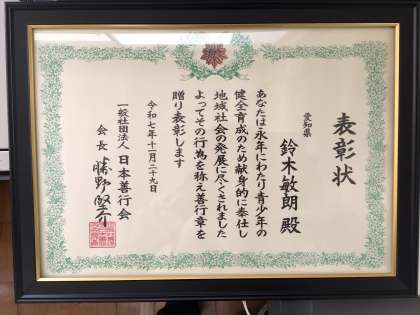 表彰状
愛知県
鈴木敏朗 殿
あなたは永年にわたり青少年の
健全育成のため献身的に奉仕し
地域社会の発展に尽くされました
よってその行為を称え善行章を
贈り表彰します
令和七年十一月二十九日
一般社団法人 日本善行会
会長 勝野堅介